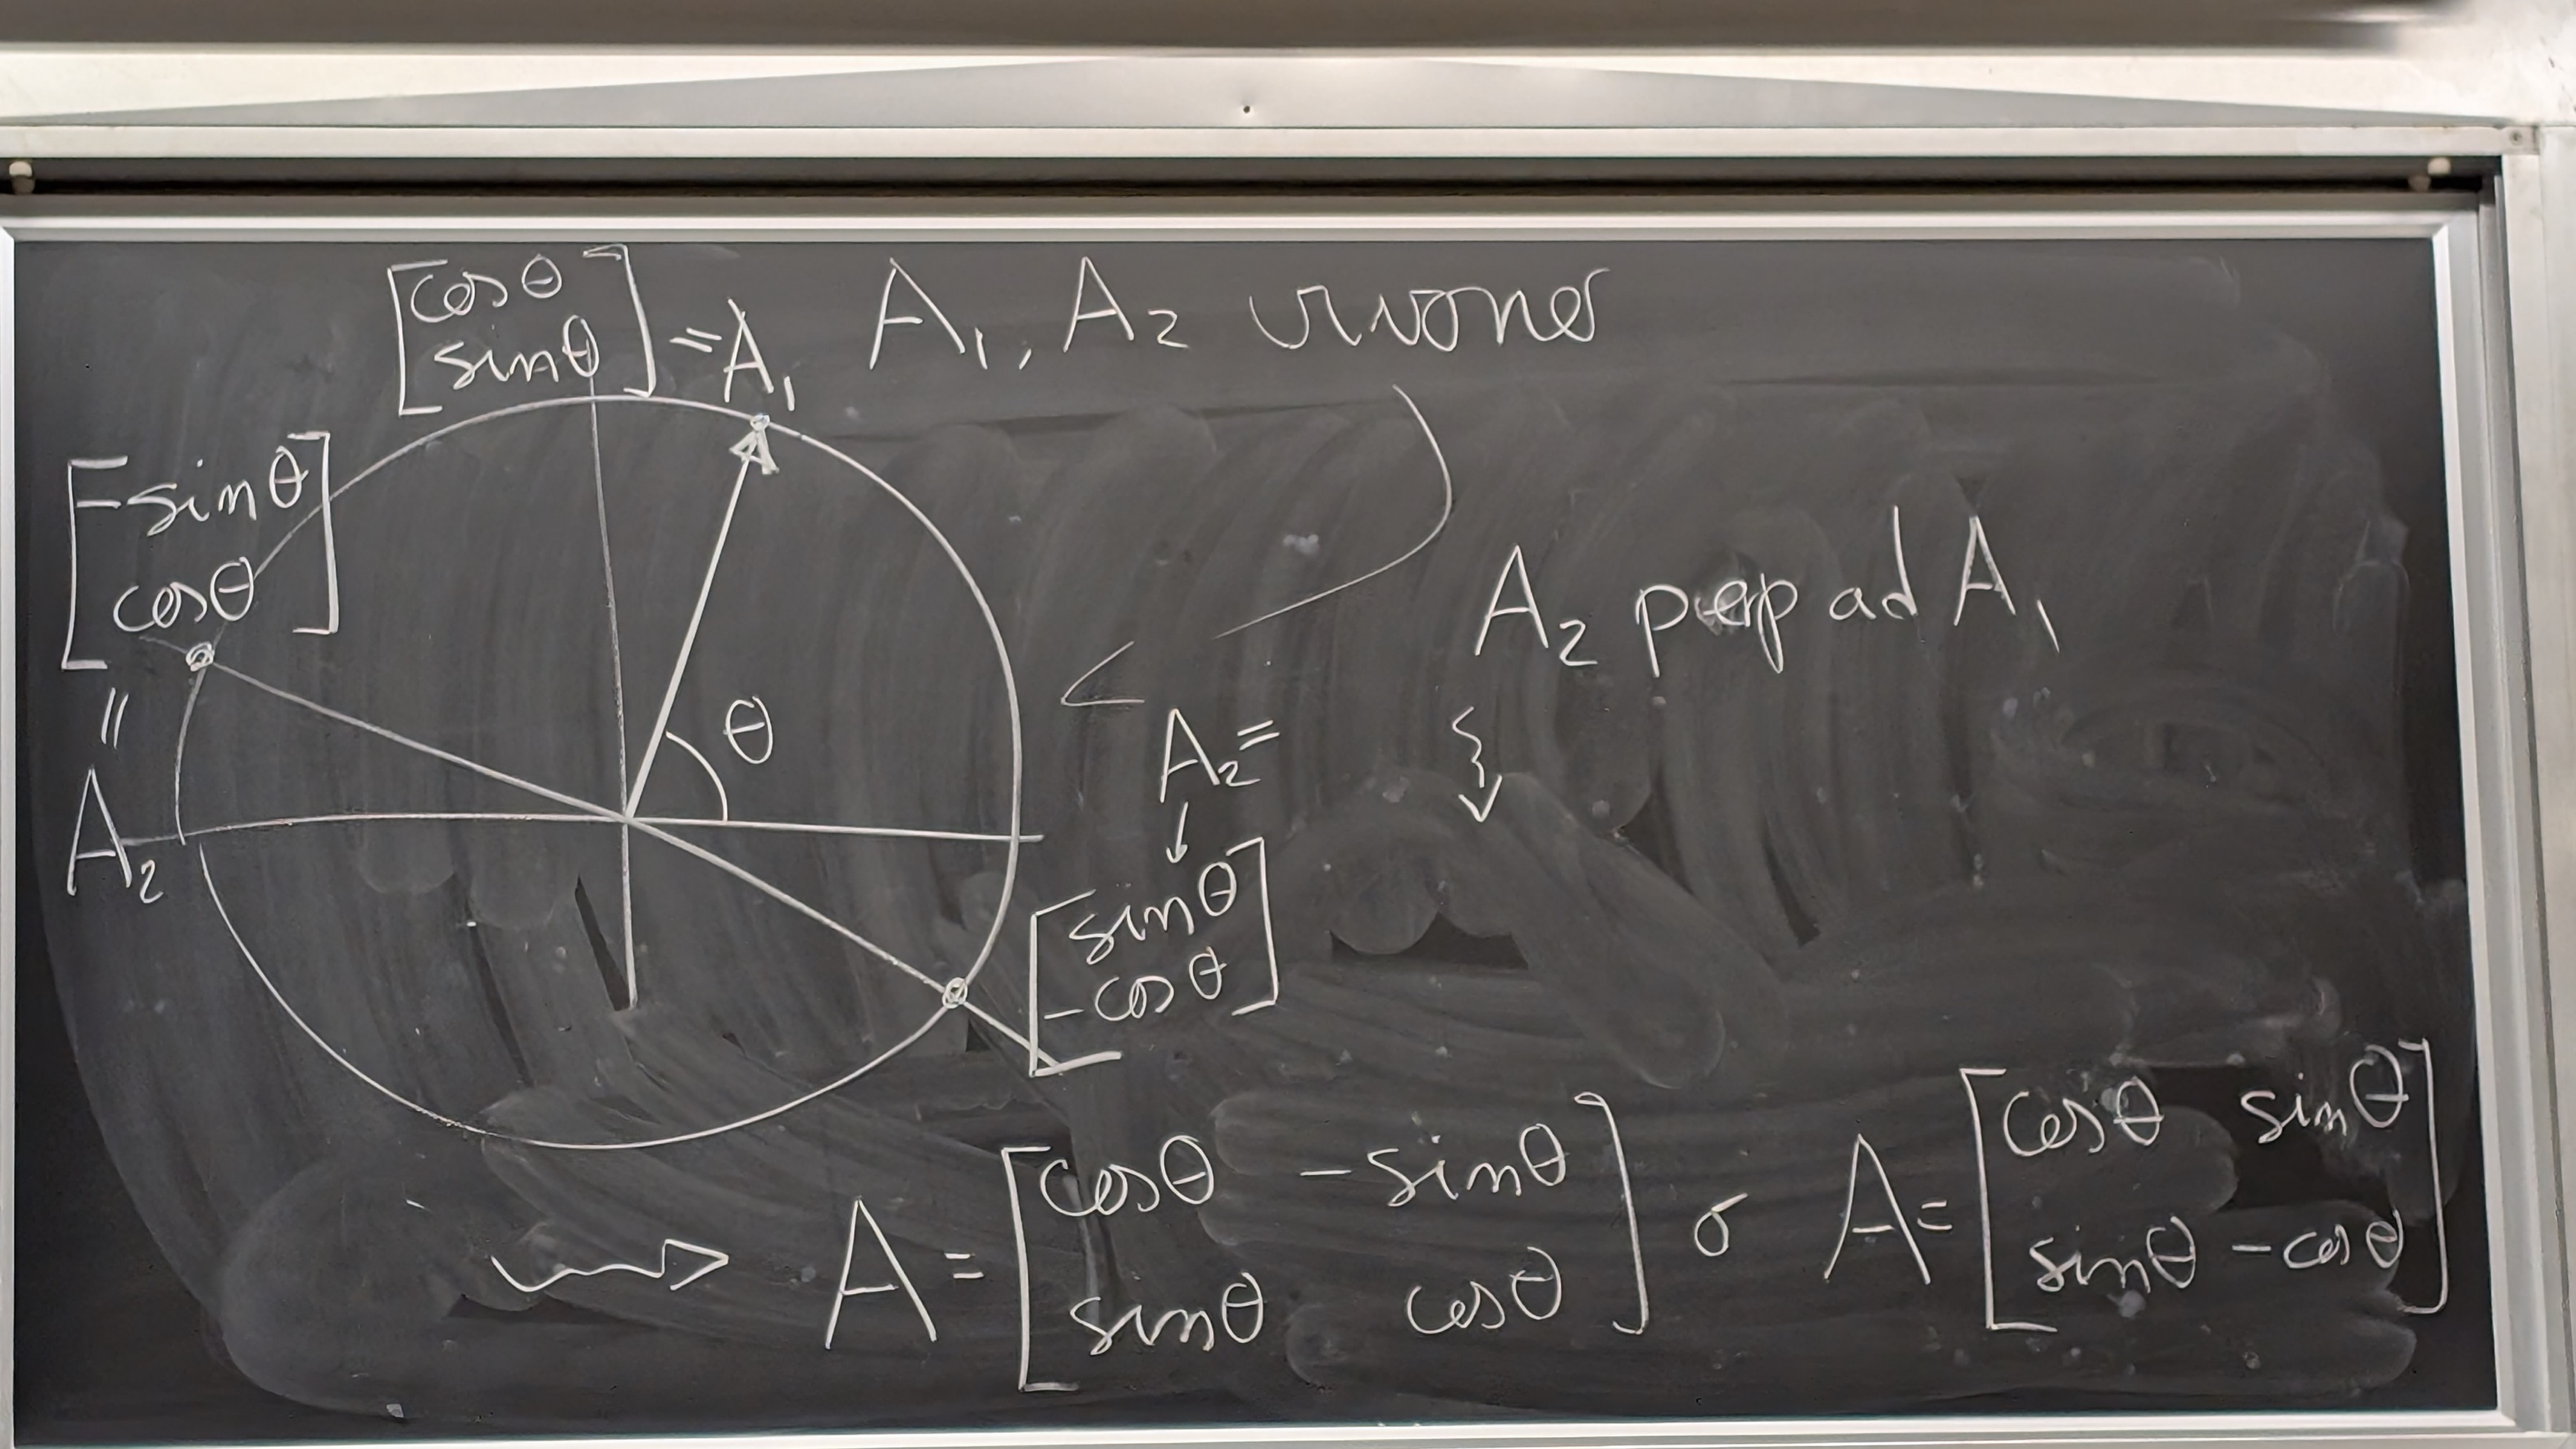 [cosθ
sinθ] = A₁
A₁, A₂
[-sinθ
cosθ]
=
A₂
θ
A₂ perp ad A₁
A₂=
[sinθ
-cosθ]
A = [cosθ -sinθ
sinθ cosθ] o A = [cosθ sinθ
sinθ -cosθ]